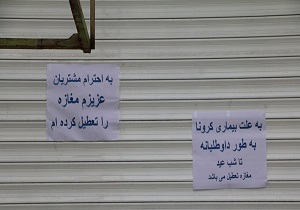 به احترام مشتریان
عزیزم مغازه
را تعطیل کرده ام
به علت بیماری کرونا
به طور داوطلبانه
تا شب عید
مغازه تعطیل می باشد